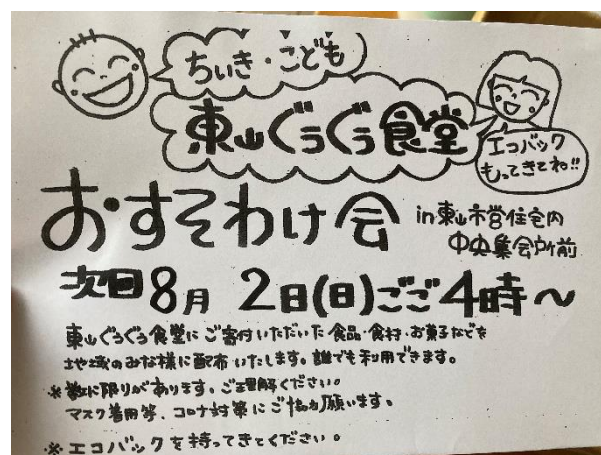 ちいき・こども
東山ぐぅぐぅ食堂
エコバック
もってきてね!!
おすそわけ会
in東山市営住宅内
中央集会所前
次回8月 2日(日)ごご4時～
東山ぐぅぐぅ食堂にご寄付いただいた食品・食材・お菓子などを
地域のみな様に配布いたします。誰でも利用できます。
※数に限りがあります。ご理解ください。
マスク着用等、コロナ対策にご協力願います。
※エコバックを持ってきてください。